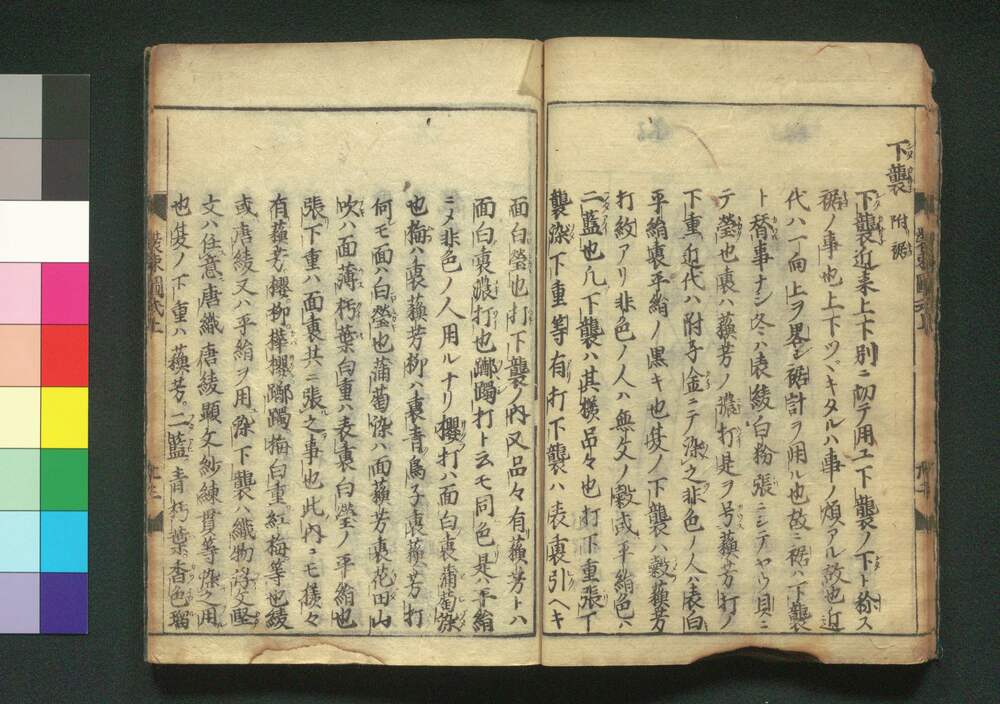 下襲 附裾
下襲近来上下別ニ切テ用ユ下襲ノ下ト称ス
裾ノ事也上下ツヾキタルハ事ノ煩アル故也近
代ハ一向上ヲ畧シ裾計ヲ用ル也故ニ裾ハ下襲
ト替事ナシ冬ハ表綾白粉張ニシテヤウ貝ニ
テ瑩也裏ハ蘓芳ノ濃打是ヲ号蘓芳打ノ
下重近代ハ附子金ニテ染之非色ノ人ハ表白
平絹裏平絹ノ黒キ也夏ノ下襲ハ縠蘓芳
打紋アリ非色ノ人ハ無文ノ縠或平絹色ハ
二藍也凡下襲ハ其様品々也打下重張下
襲染下重等有打下襲ハ表裏引ヘキ
面白瑩也打下襲ノ内又品々有蘓芳トハ
面白裏濃打也躑躅打ト云モ同色是ハ平絹
ニメ非色ノ人用ルナリ櫻打ハ面白裏蒲萄染
也梅ハ裏蘓芳柳ハ裏青鳥子裏蘓芳打
何モ面ハ白瑩也蒲萄染ハ面蘓芳裏花田山
吹ハ面薄朽葉白重ハ表裏白瑩ノ平絹也
張下重ハ面裏共ニ張之事也此内ニモ様々
有蘓芳櫻柳樺櫻躑躅梅白重紅梅等也綾
或唐綾又ハ平絹ヲ用染下襲ハ織物浮文堅
文ハ任意唐織唐綾顕文紗練貫等染テ用
也夏ノ下重ハ蘓芳二藍青朽葉香色瑠
装束圖式上